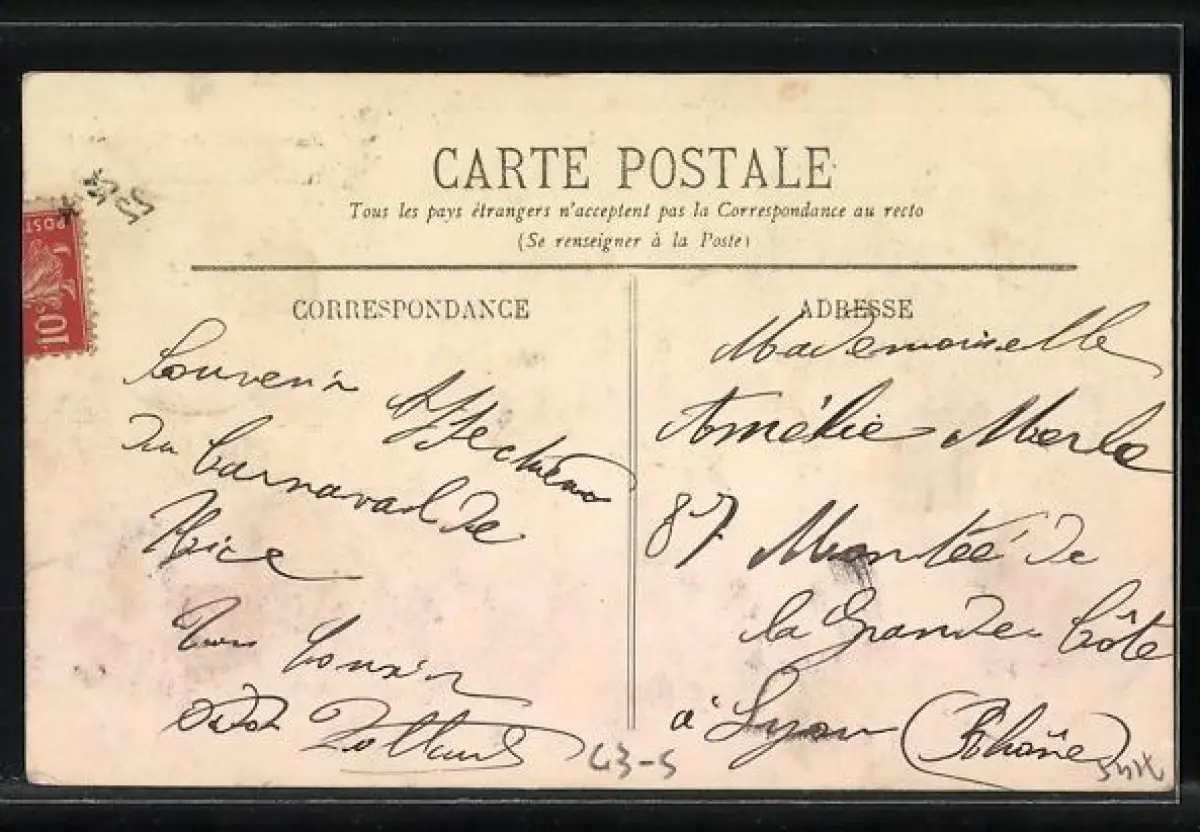 CARTE POSTALE
Tous les pays étrangers n'acceptent pas la Correspondance au recto
(Se renseigner à la Poste)
CORRESPONDANCE
Souvenir Affectueux
du Carnaval de
Nice
Ton Cousin
ADRESSE
Mademoiselle
Amélie Merle
87 Montée de
la Grande Côte
à Lyon (Rhône)
POST
10c
43-5